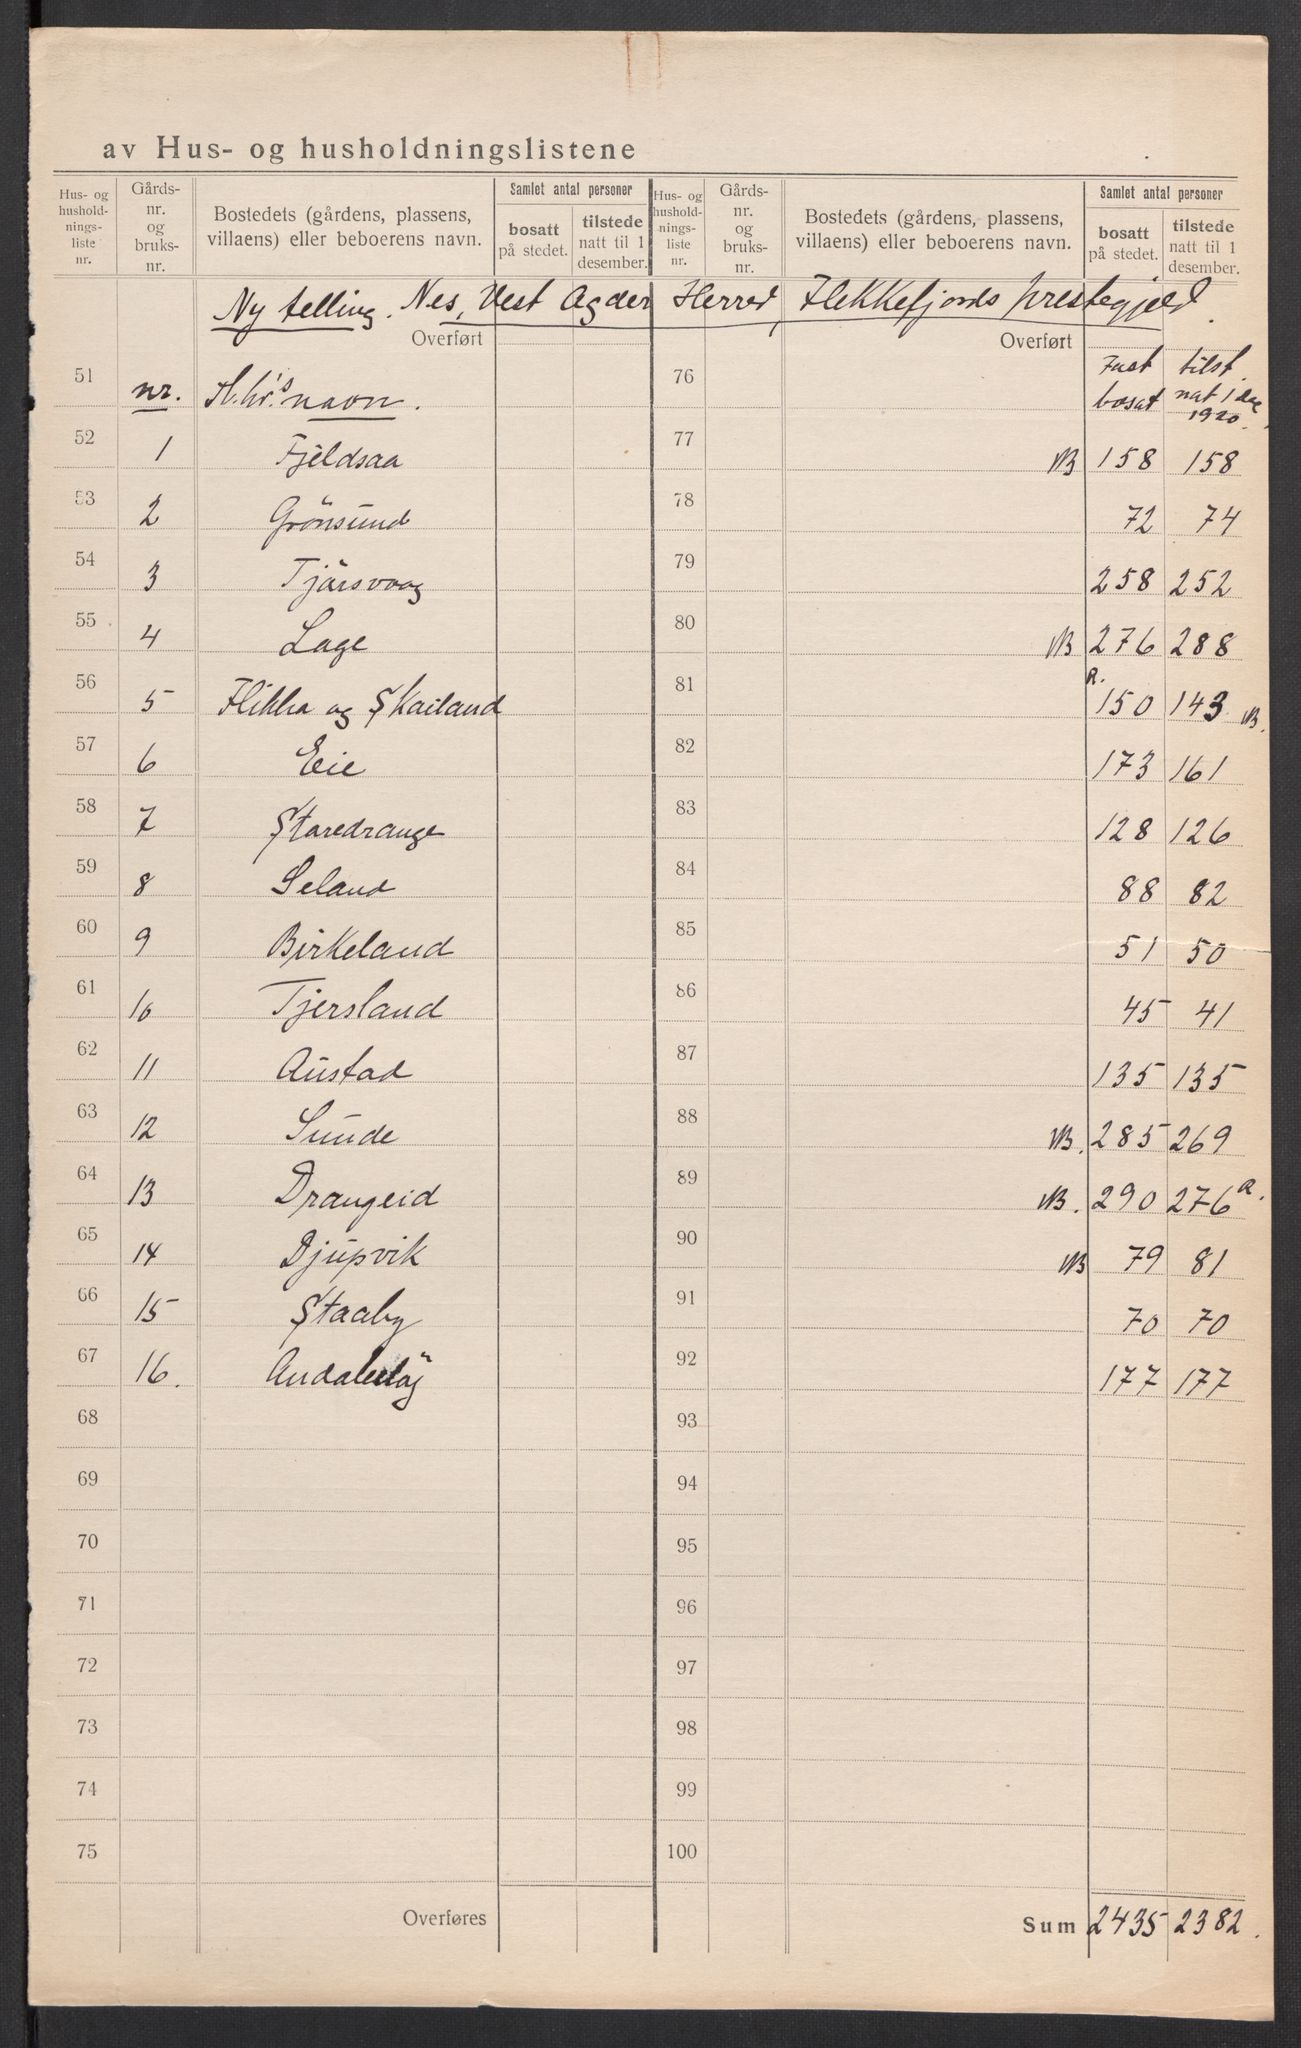 av Hus- og husholdningslistene
Hus- og husholdningsliste nr. Gårds- nr. og bruks- nr. Bostedets (gårdens, plassens, villaens) eller beboerens navn. Samlet antal personer bosatt på stedet. tilstede natt til 1 desember. Hus- og husholdningsliste nr. Gårds- nr. og bruks- nr. Bostedets (gårdens, plassens, villaens) eller beboerens navn. Samlet antal personer bosatt på stedet. tilstede natt til 1 desember.
Ny telling. Nes, Vest Agder Herred, Flekkefjords prestegjeld.
Overført Overført
51 nr. navn. 76 Fast bosat tilst. nat 1 1920.
52 1 Fjeldsaa 77 NB 158 158
53 2 Grönsund 78 72 74
54 3 Tjärsvaag 79 258 252
55 4 Lage 80 NB 276 288
56 5 Flikka og Skailand 81 a. 150 143 NB.
57 6 Eie 82 173 161
58 7 Staredrange 83 128 126
59 8 Seland 84 88 82
60 9 Birkeland 85 51 50
61 10 Tjersland 86 45 41
62 11 Austad 87 135 135
63 12 Sunde 88 NB. 285 269
64 13 Drangeid 89 NB. 290 276 a.
65 14 Djupvik 90 NB 79 81
66 15 Staaby 91 70 70
67 16. 92 177 177
68 93
69 94
70 95
71 96
72 97
73 98
74 99
75 100
Overføres Sum 2435 2382.